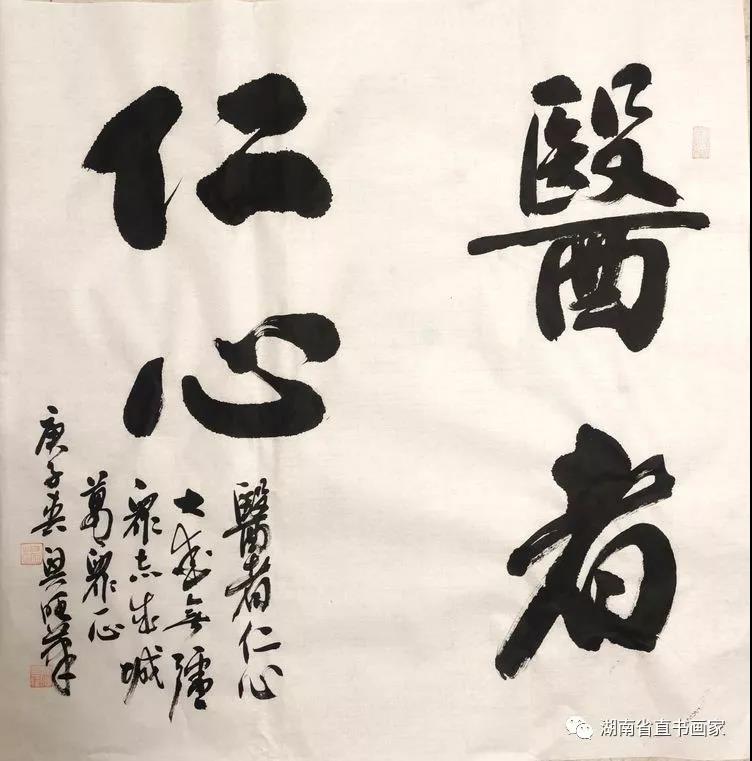 醫者
仁心
醫者仁心
大愛無疆
眾志成城
萬眾一心
庚子春
湖南省直书画家